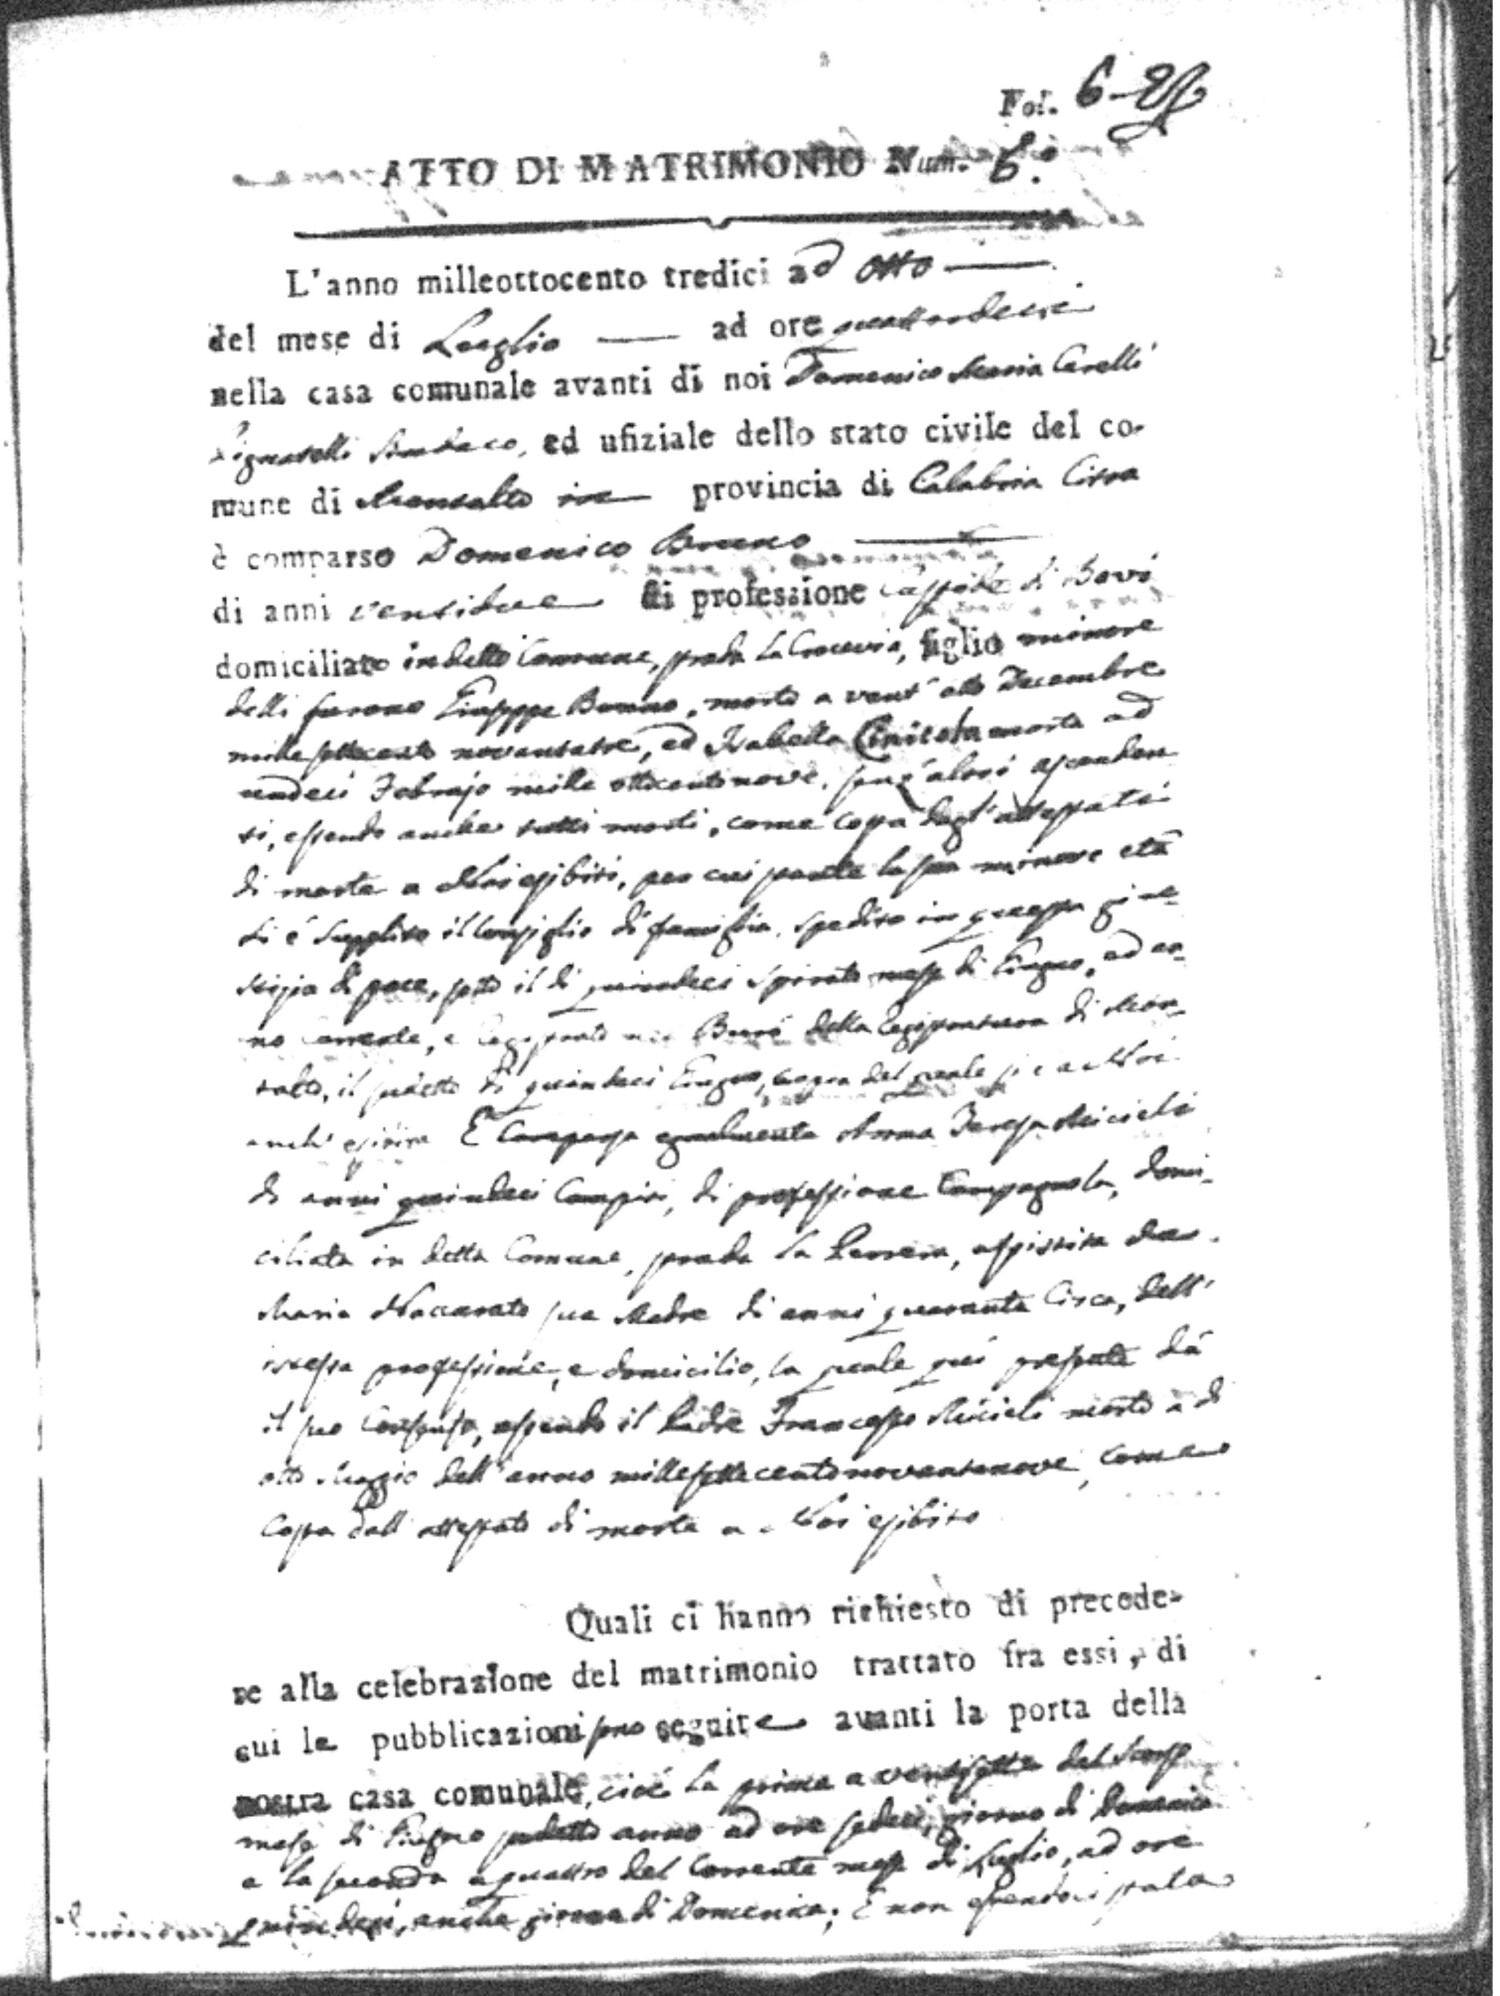 Fol. 6
ATTO DI MATRIMONIO Num. 6.
L'anno milleottocento tredici ad otto
del mese di Luglio ad ore quattordeci
nella casa comunale avanti di noi Domenico Maria Carelli
Pignatelli Sindaco, ed ufiziale dello stato civile del co-
mune di Montalto provincia di Calabria Citra
è comparso Domenico Bruno
di anni ventidue di professione di Bovi
domiciliato in detto Comune, strada La Crocevia, figlio minore
delli furono Giuseppe Bruno, morto a vent'otto Decembre
mille settecento novantatre, ed Isabella morta ad
undeci Febrajo mille ottocento nove, senz'altri ascenden
ti, essendo anche tutti morti, come costa dagl'attestati
di morte a Noi esibiti, per cui stante la sua minore età
si è supplito il Consiglio di famiglia, spedito in questa giu-
stizia di pace, sotto il dì quindeci spirato mese di Giugno, ad an-
no corrente, e Registrato nel Burò della Registratura di Mon-
talto, il sudetto dì quindeci Giugno, copia del quale si è a Noi
anch'esibita E' Comparsa egualmente Anna Teresa Miceli
di anni quindeci Compiti, di professione Campagnola, domi-
ciliata in detta Comune, strada La assistita da
Maria Naccarato sua Madre di anni quaranta Circa, dell'
istessa professione, e domicilio, la quale quì presente dà
il suo Consenso, essendo il Padre Francesco Miceli morto a dì
otto Maggio dell'anno mille settecento novantanove, come
costa dall'attestato di morte a Noi esibito
Quali ci hanno richiesto di precede-
re alla celebrazione del matrimonio trattato fra essi, di
cui le pubblicazioni sono seguite avanti la porta della
nostra casa comunale, cioè La prima a ventisette del scorso
mese di Giugno sudetto anno ad ore sedeci, giorno di Domenica
e la seconda a quattro del Corrente mese di Luglio, ad ore
quindeci, anche giorno di Domenica; E non essendoci stata